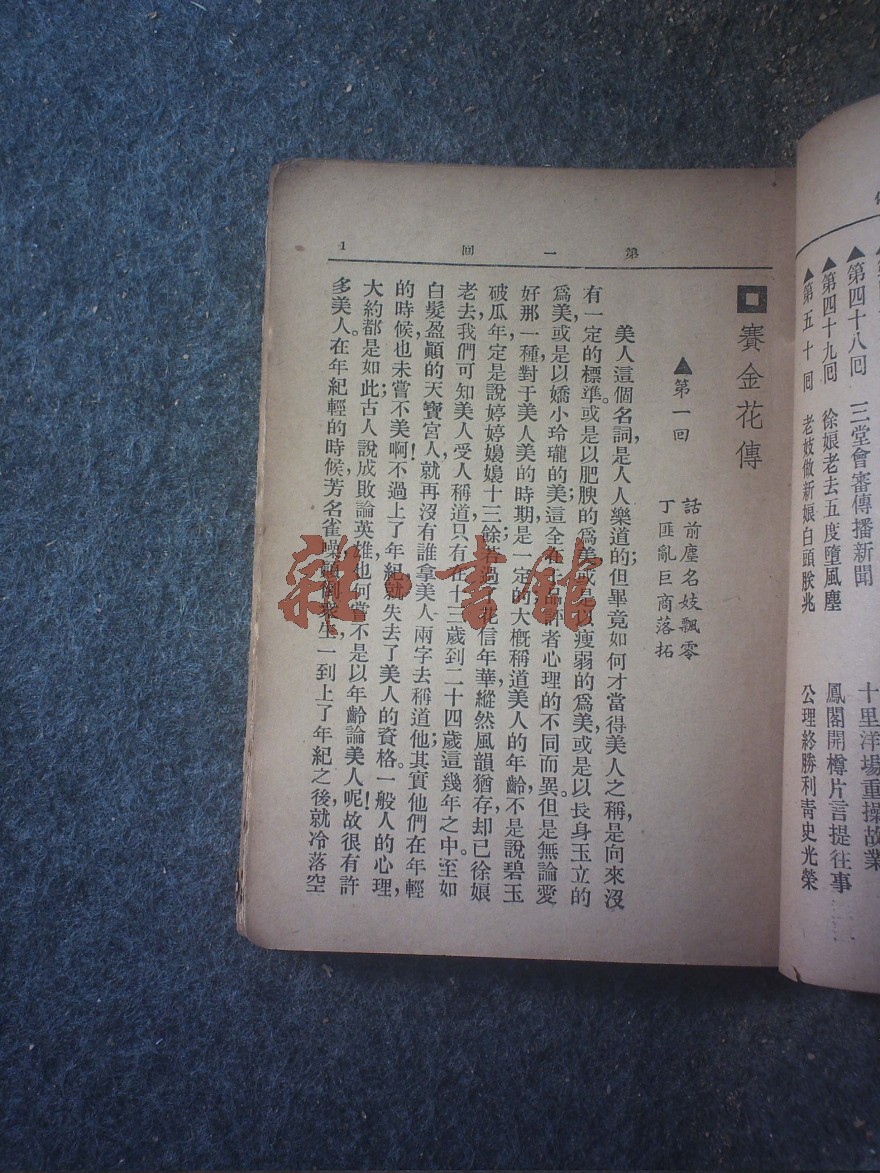 第四十八回　三堂會審傳播新聞　十里洋場重操故業
▲第四十九回　徐娘老去五度墮風塵　鳳閣開樽片言提往事
▲第五十回　老妓做新娘白頭朕兆　公理終勝利青史光榮
第一回　1
賽金花傳
▲第一回　話前塵名妓飄零
丁匪亂巨商落拓
美人這個名詞,是人人樂道的但畢竟如何才當得美人之稱,是向來沒
有一定的標準。或是以肥腴的爲美;或是以瘦弱的爲美或是以長身玉立的
爲美;或是以嬌小玲瓏的美;這全在評者心理的不同而異。但是無論愛
好那一種對于美人美的時期是一定的大槪稱道美人的年齡,不是說碧玉
破瓜年定是說婷婷嫋嫋十三餘若過了花信年華縱然風韻猶存却已徐娘
老去我們可知美人受人稱道只有在十三歲到二十四歲這幾年之中。至如
白髮盈顚的天寶宮人,就再沒有誰拿美人兩字去稱道他;其實他們在年輕
的時候也未嘗不美啊!不過上了年紀,就失去了美人的資格。一般人的心理,
大約都是如此古人說成敗論英雄也何嘗不是以年齡論美人呢!故很有許
多美人。在年紀輕的時候芳名雀噪,顚倒衆生一到上了年紀之後,就冷落空
雜·書館